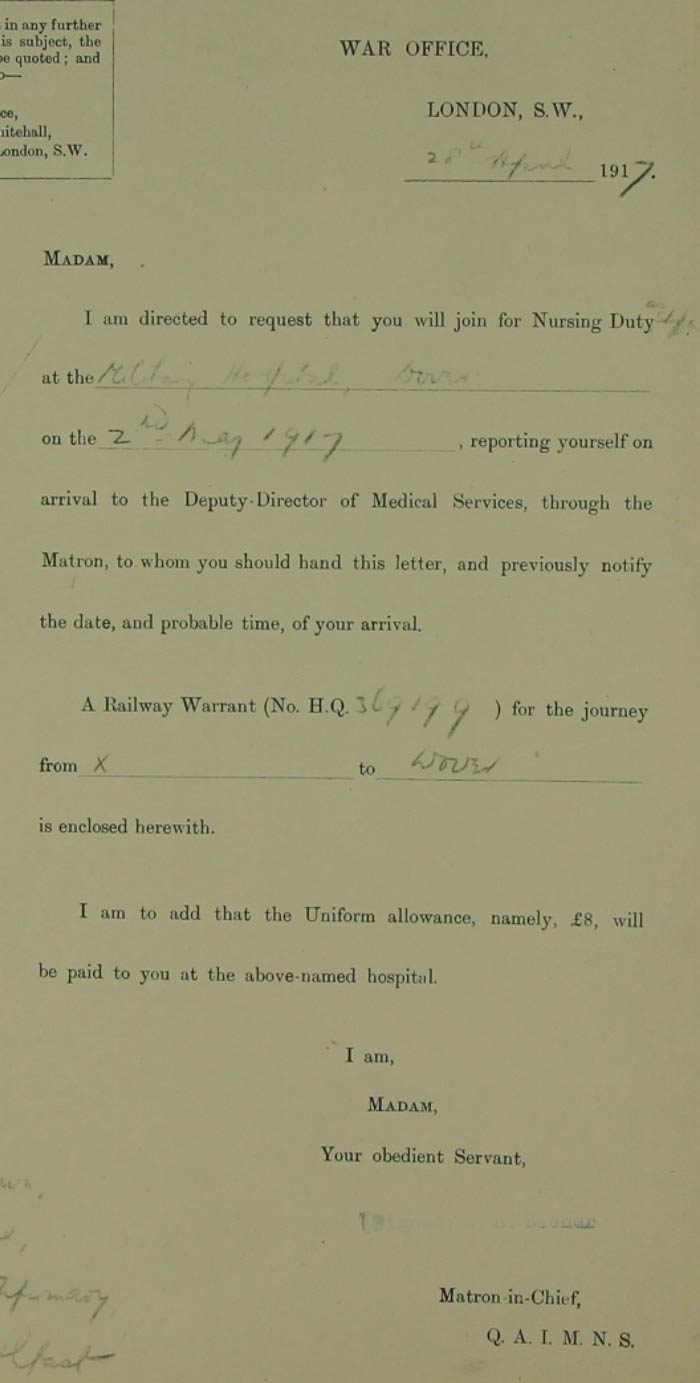 in any further
is subject, the
be quoted; and
WAR OFFICE,
ce,
hitehall,
London, S.W.
LONDON, S.W.,
28th April 1917.
MADAM,
I am directed to request that you will join for Nursing Duty
at the Military Hospital, Dover
on the 2nd May 1917, reporting yourself on
arrival to the Deputy-Director of Medical Services, through the
Matron, to whom you should hand this letter, and previously notify
the date, and probable time, of your arrival.
A Railway Warrant (No. H.Q. 369199) for the journey
from X to Dover
is enclosed herewith.
I am to add that the Uniform allowance, namely, £8, will
be paid to you at the above-named hospital.
I am,
MADAM,
Your obedient Servant,
(Signed) Becher
Matron-in-Chief,
Q. A. I. M. N. S.